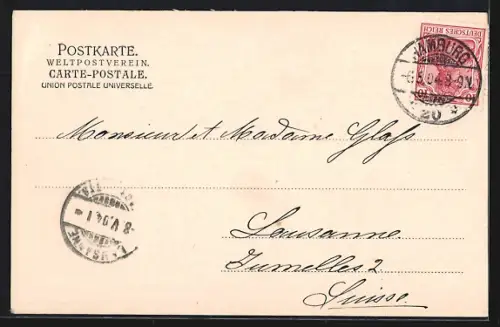 POSTKARTE.
WELTPOSTVEREIN.
CARTE-POSTALE.
UNION POSTALE UNIVERSELLE.
DEUTSCHES REICH
10 10
HAMBURG
-6.5.04.8-9V.
20
Monsieur et Madame Glass
Lausanne.
Jumelles 2
Suisse.
LAUSANNE
-8.V.04.1